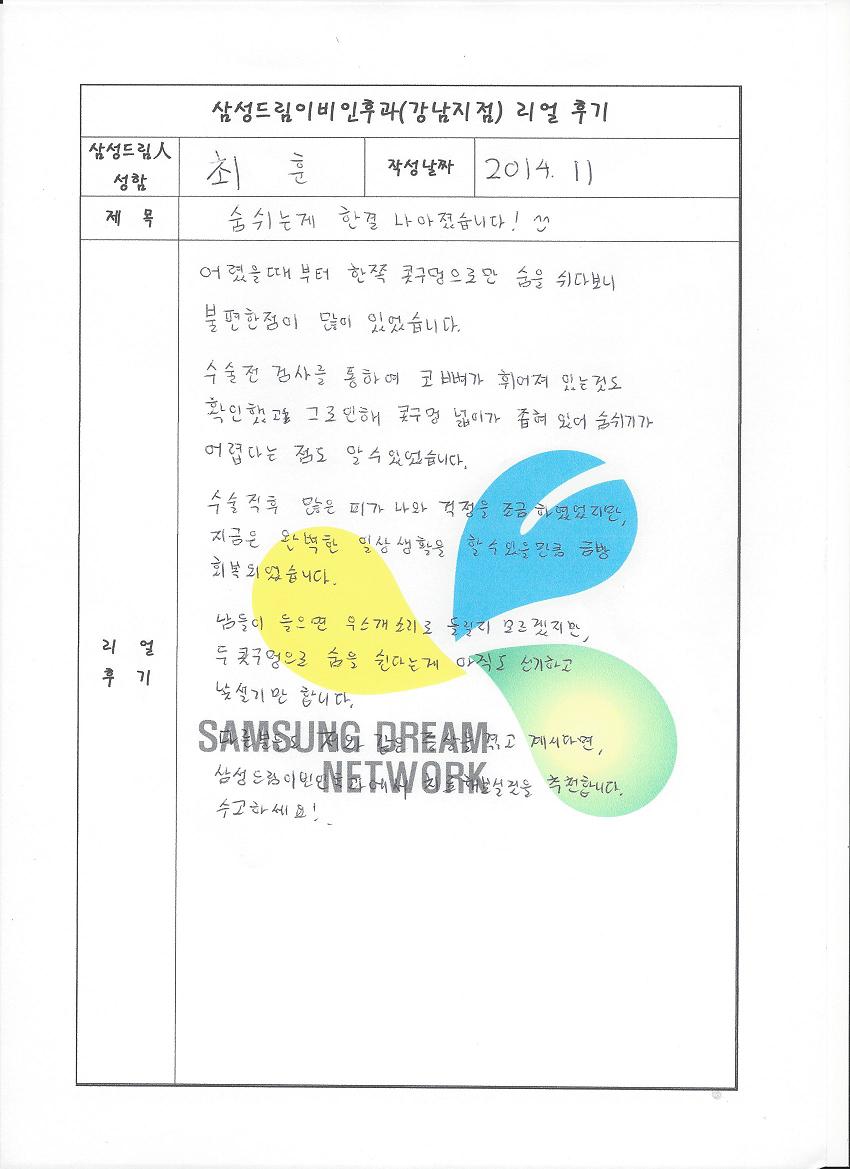 삼성드림이비인후과(강남지점) 리얼 후기
삼성드림人 성함
최 훈
작성날짜
2014. 11
제 목
숨쉬는게 한결 나아졌습니다! ^^
리 얼
후 기
어렸을때부터 한쪽 콧구멍으로만 숨을 쉬다보니
불편한점이 많이 있었습니다.
수술전 검사를 통하여 코뼈가 휘어져 있는것도
확인했고 그로인해 콧구멍 넓이가 좁혀 있어 숨쉬기가
어렵다는 점도 알 수 있었습니다.
수술직후 많은 피가 나와 걱정을 조금 하였었지만,
지금은 완벽한 일상생활을 할 수 있을만큼 금방
회복되었습니다.
남들이 들으면 우스개소리로 들릴지 모르겠지만,
두 콧구멍으로 숨을 쉰다는게 아직도 신기하고
낯설기만 합니다.
다른분도 저와 같은 증상을 겪고 계시다면,
삼성드림이빈인후과에서 치료해보실것을 추천합니다.
수고하세요!
SAMSUNG DREAM
NETWORK